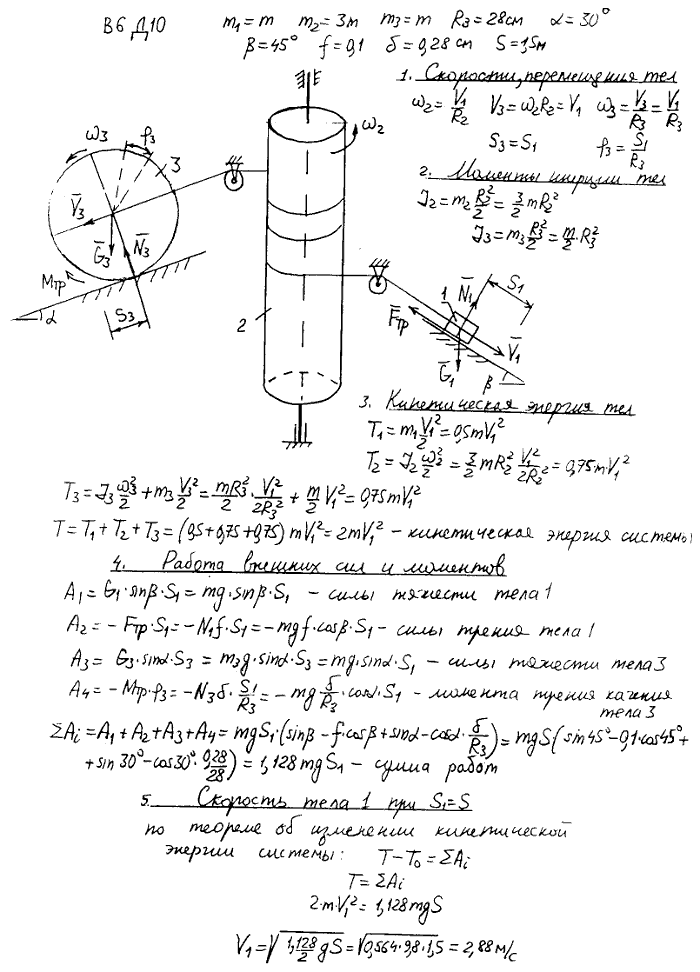 В6 Д10
m₁ = m m₂ = 3m m₃ = m R₃ = 28см α = 30°
β = 45° f = 0,1 δ = 0,28 см S = 1,5м
1. Скорости, перемещения тел
ω₂ = V₁/R₂ V₃ = ω₂R₂ = V₁ ω₃ = V₃/R₃ = V₁/R₃
S₃ = S₁ φ₃ = S₁/R₃
2. Моменты инерции тел
J₂ = m₂ R₂²/2 = 3/2 mR₂²
J₃ = m₃ R₃²/2 = m/2 · R₃²
ω₃ φ₃ 3
V̅₃
G̅₃ N̅₃
Mтр
α S₃
ω₂
2
F̅тр 1 N̅₁ S₁
G̅₁ V̅₁
β
3. Кинетическая энергия тел
T₁ = m₁ V₁²/2 = 0,5mV₁²
T₂ = J₂ ω₂²/2 = 3/2 mR₂² V₁²/2R₂² = 0,75mV₁²
T₃ = J₃ ω₃²/2 + m₃ V₃²/2 = mR₃²/2 · V₁²/2R₃² + m/2 V₁² = 0,75mV₁²
T = T₁ + T₂ + T₃ = (0,5+0,75+0,75) mV₁² = 2mV₁² – кинетическая энергия системы
4. Работа внешних сил и моментов
A₁ = G₁·sinβ·S₁ = mg·sinβ·S₁ – силы тяжести тела 1
A₂ = – Fтр·S₁ = –N₁f·S₁ = –mgf·cosβ·S₁ – силы трения тела 1
A₃ = G₃·sinα·S₃ = m₃g·sinα·S₃ = mg·sinα·S₁ – силы тяжести тела 3
A₄ = –Mтр·φ₃ = –N₃δ·S₁/R₃ = –mg δ/R₃·cosα·S₁ – момента трения качения
тела 3
ΣAi = A₁ + A₂ + A₃ + A₄ = mgS₁·(sinβ – f·cosβ + sinα – cosα·δ/R₃) = mgS(sin45° – 0,1·cos45° +
+ sin 30° – cos30°·0,28/28) = 1,128 mgS₁ – сумма работ
5. Скорость тела 1 при S₁ = S
по теореме об изменении кинетической
энергии системы: T – T₀ = ΣAi
T = ΣAi
2·mV₁² = 1,128 mgS
V₁ = √(1,128/2 gS) = √(0,564·9,8·1,5) = 2,88 м/с